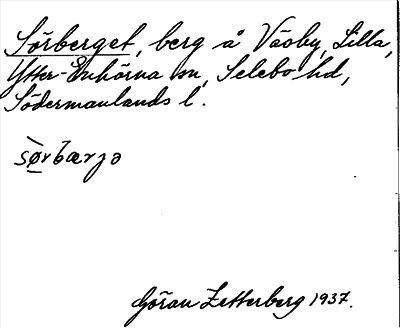 Sörberget, berg å Väsby, Lilla,
Ytter-Enhörna sn, Selebo hd,
Södermanlands l.
sørbærjə
Göran Zetterberg 1937.